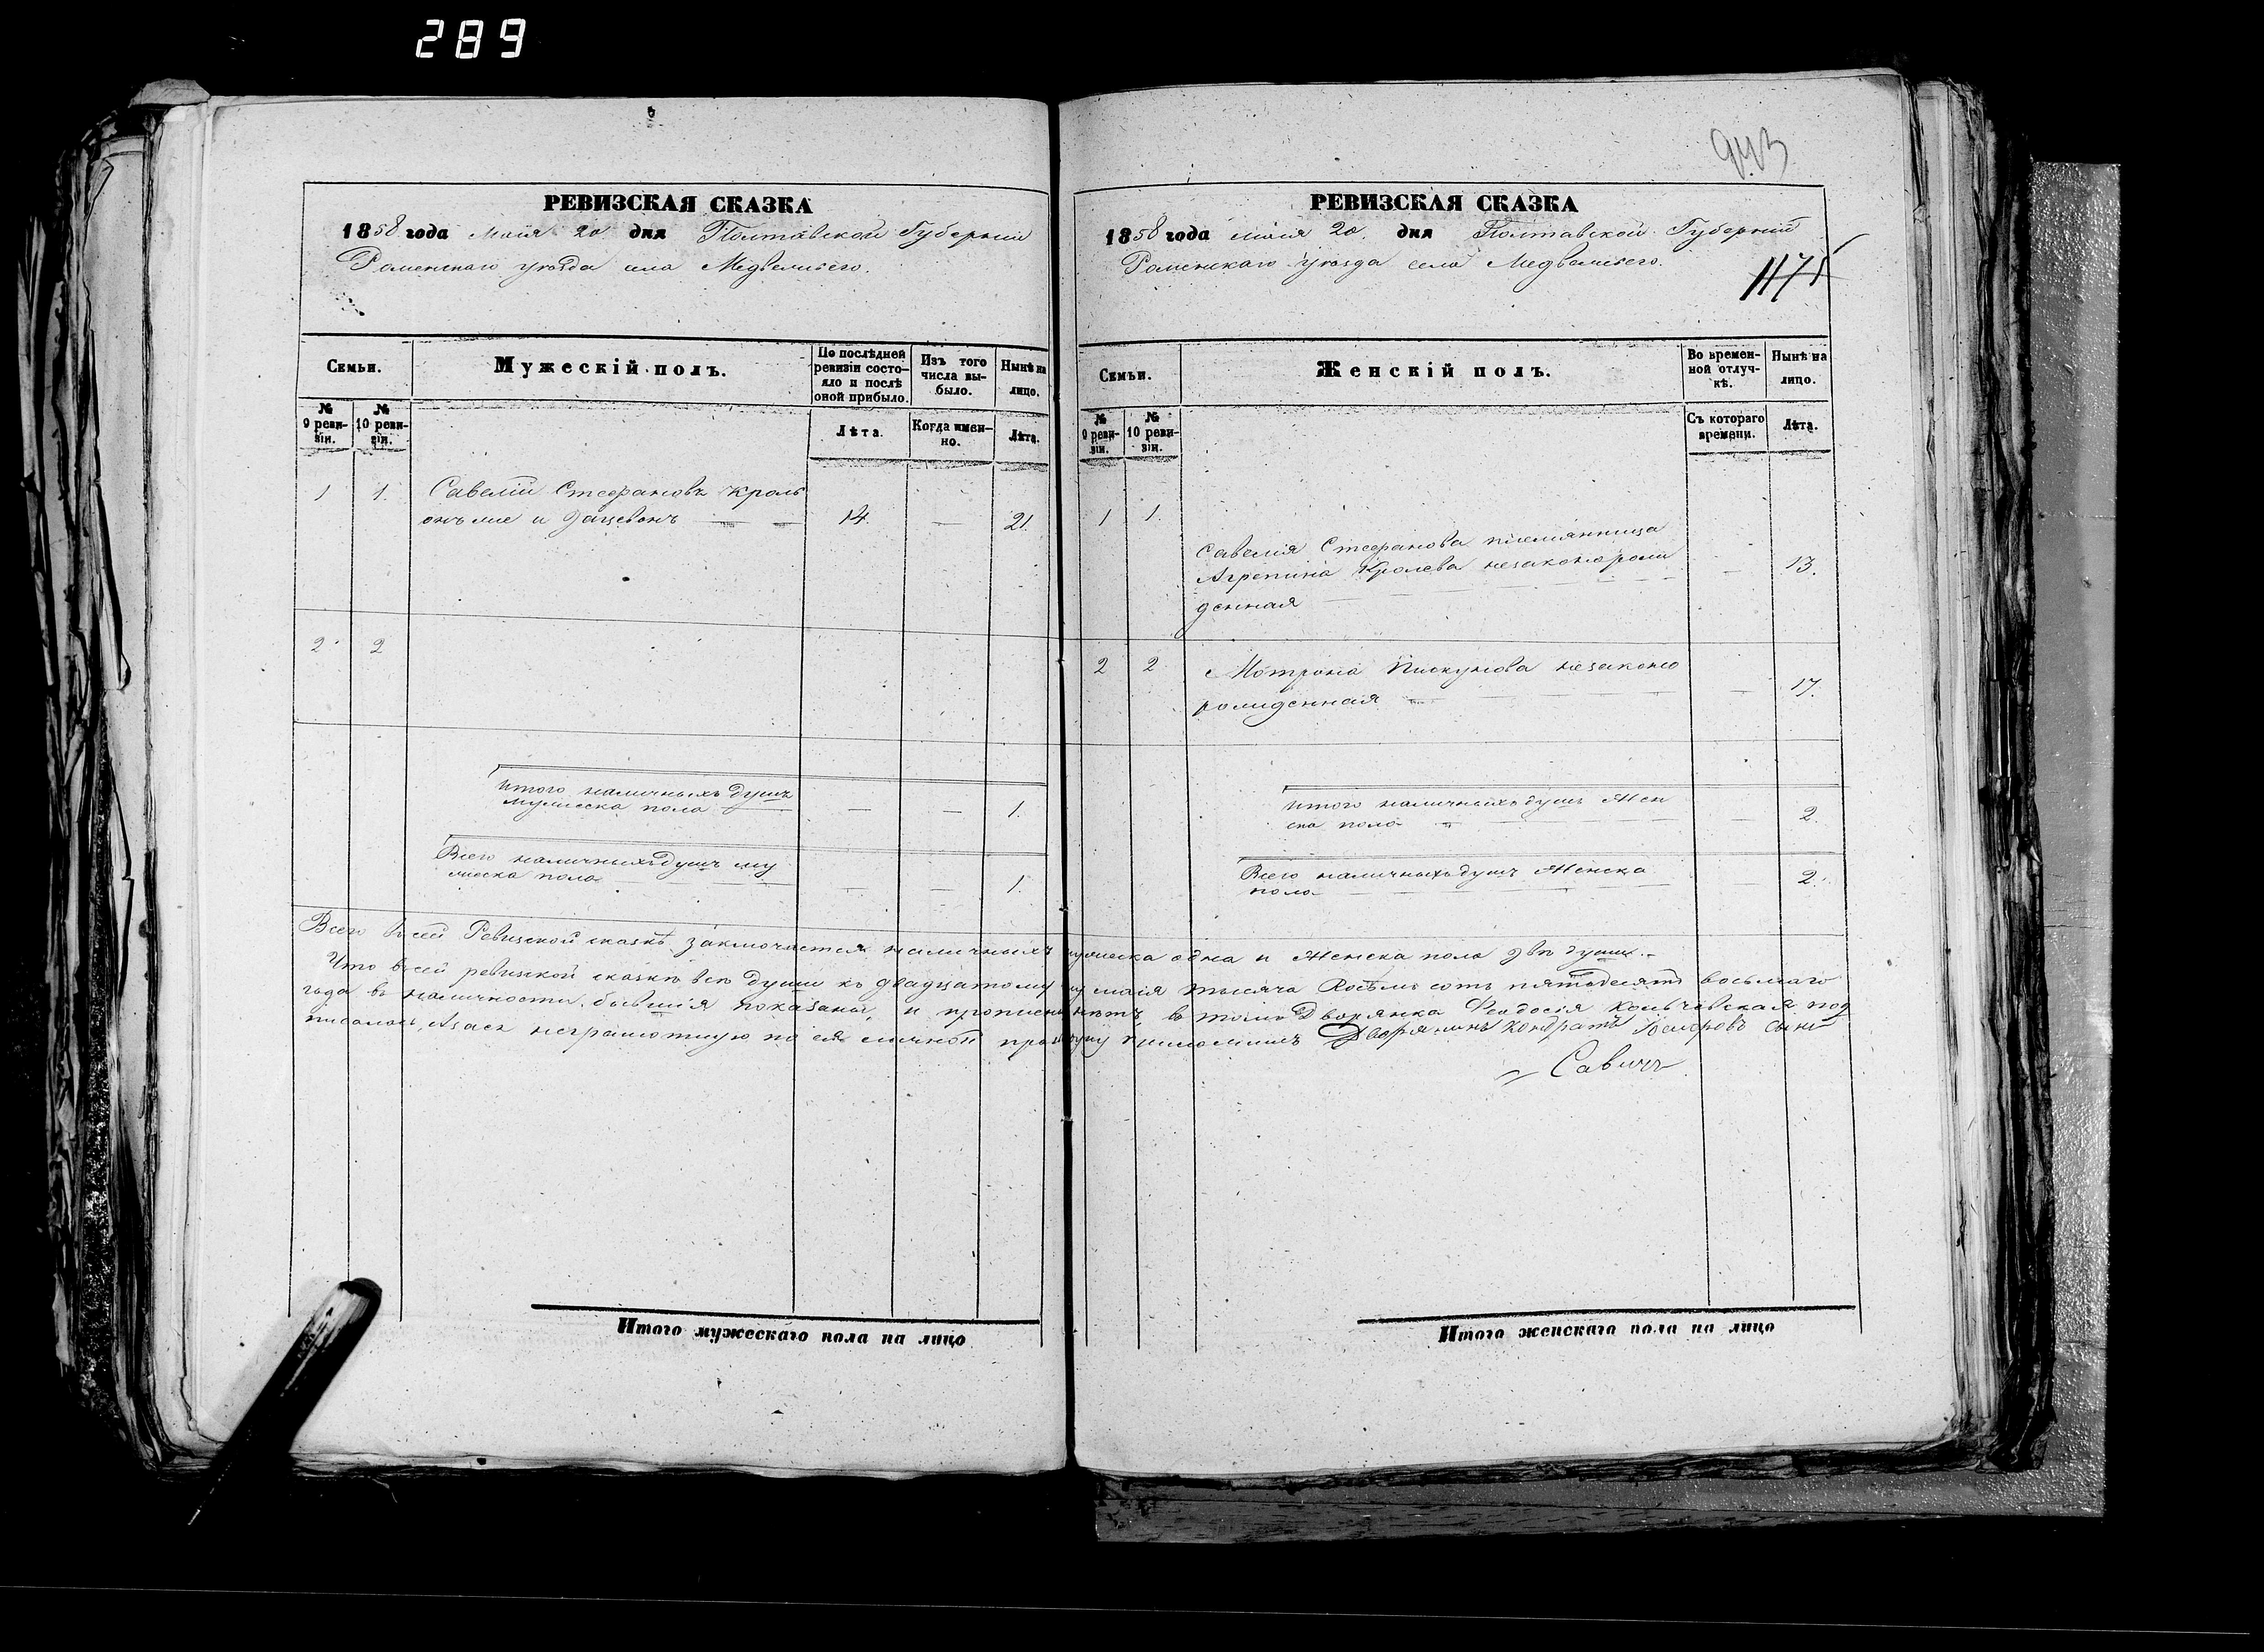 289
943
РЕВИЗСКАЯ СКАЗКА
1858 года Маія 20 дня Полтавской Губерніи
Роменскаго уезда села Медвежьего.
Семьи.
Мужескій полъ.
По послѣдней ревизіи состо-
яло и послѣ
оной прибыло.
Изъ того
числа вы-
было.
Нынѣ на
лицо.
№
9 реви-
зіи.
№
10 реви-
зіи.
Лѣта.
Когда имен-
но.
Лѣта.
1 1. Савелій Стефановъ Кроль
онъ же и 14 — 21.
2 2
Итого наличныхъ душъ
мужеска пола — — 1.
Всего наличныхъ душъ му
жеска пола — — 1.
РЕВИЗСКАЯ СКАЗКА
1858 года маія 20. дня Полтавской Губерніи
Роменскаго уезда села Медвежьего.
1175
Семьи.
Женскій полъ.
Во времен-
ной отлуч-
кѣ.
Нынѣ на
лицо.
№
9 реви-
зіи.
№
10 реви-
зіи.
Съ котораго
времени.
Лѣта.
1 1.
Савелія Стефанова племянница
Агрепина Кролева незаконорож
денная — 13.
2 2 Мотрона Пискунова незаконо
рожденная — 17.
Итого наличныхъ душъ Жен
ска пола — 2.
Всего наличныхъ душъ Женска
пола — 2.
Всего в сей Ревизской сказкѣ заключается наличныхъ мужеска одна и Женска пола две души.
Что в сей ревизской сказкѣ все души къ двадцатому маія тысяча Восемь сотъ пятьдесятъ восьмаго
года въ наличности бывшія показаны, и нѣтъ, в томъ Дворянка Феодосія под
писалась, Азаея неграмотную по ея личной прозбѣ Дворянинъ Кондратъ сынъ
Савичъ
Итого мужескаго пола на лицо
Итого женскаго пола на лицо